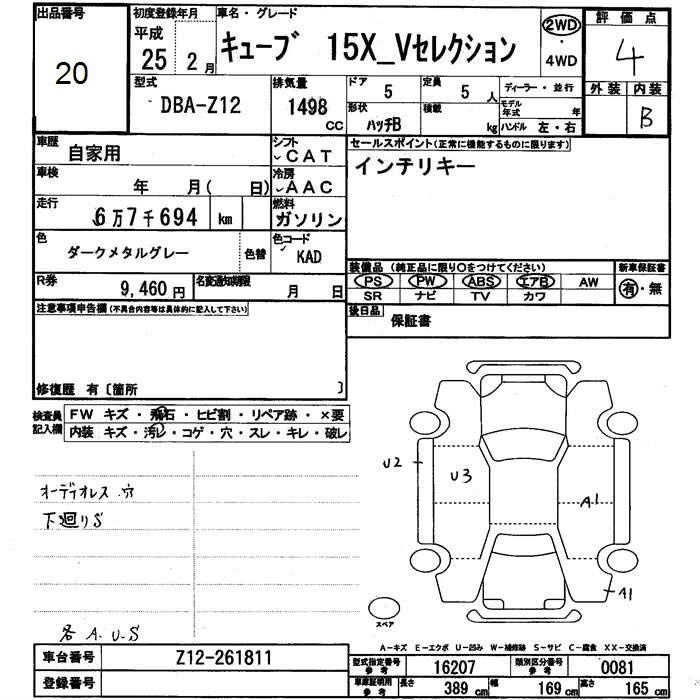 出品番号
20
初度登録年月
平成
25 2月
車名・グレード
キューブ 15X_Vセレクション
2WD
・
4WD
評価点
4
外装 内装
B
型式
DBA-Z12
排気量
1498
CC
ドア
5
定員
5 人
形状
ハッチB
積載
kg
ディーラー・並行
モデル年式 年
ハンドル 左・右
車歴
自家用
シフト
CAT
車検
年 月( 日)
冷房
AAC
走行
6万7千694 km
燃料
ガソリン
色
ダークメタルグレー
色替
色コード
KAD
R券
9,460円
名変通知期限
月 日
セールスポイント(正常に機能するものに限ります)
インテリキー
装備品 (純正品に限り○をつけてください)
新車保証書
PS PW ABS エアB AW
SR ナビ TV カワ
有・無
後日品
保証書
注意事項申告欄(不具合内容等は具体的に記入して下さい)
修復歴 有〔箇所 〕
検査員
記入欄
FW キズ・飛石・ヒビ割・リペア跡・×要
内装 キズ・汚レ・コゲ・穴・スレ・キレ・破レ
オーディオレス 穴
下廻りS
各 A.U.S
U2
U3
A1
A1
スペア
A-キズ E-エクボ U-凹み W-補修跡 S-サビ C-腐食 XX-交換済
車台番号
Z12-261811
登録番号
型式指定番号
参考
16207
類別区分番号
参考
0081
車庫証明用
参考
長さ 389 cm 幅 169 cm 高さ 165 cm